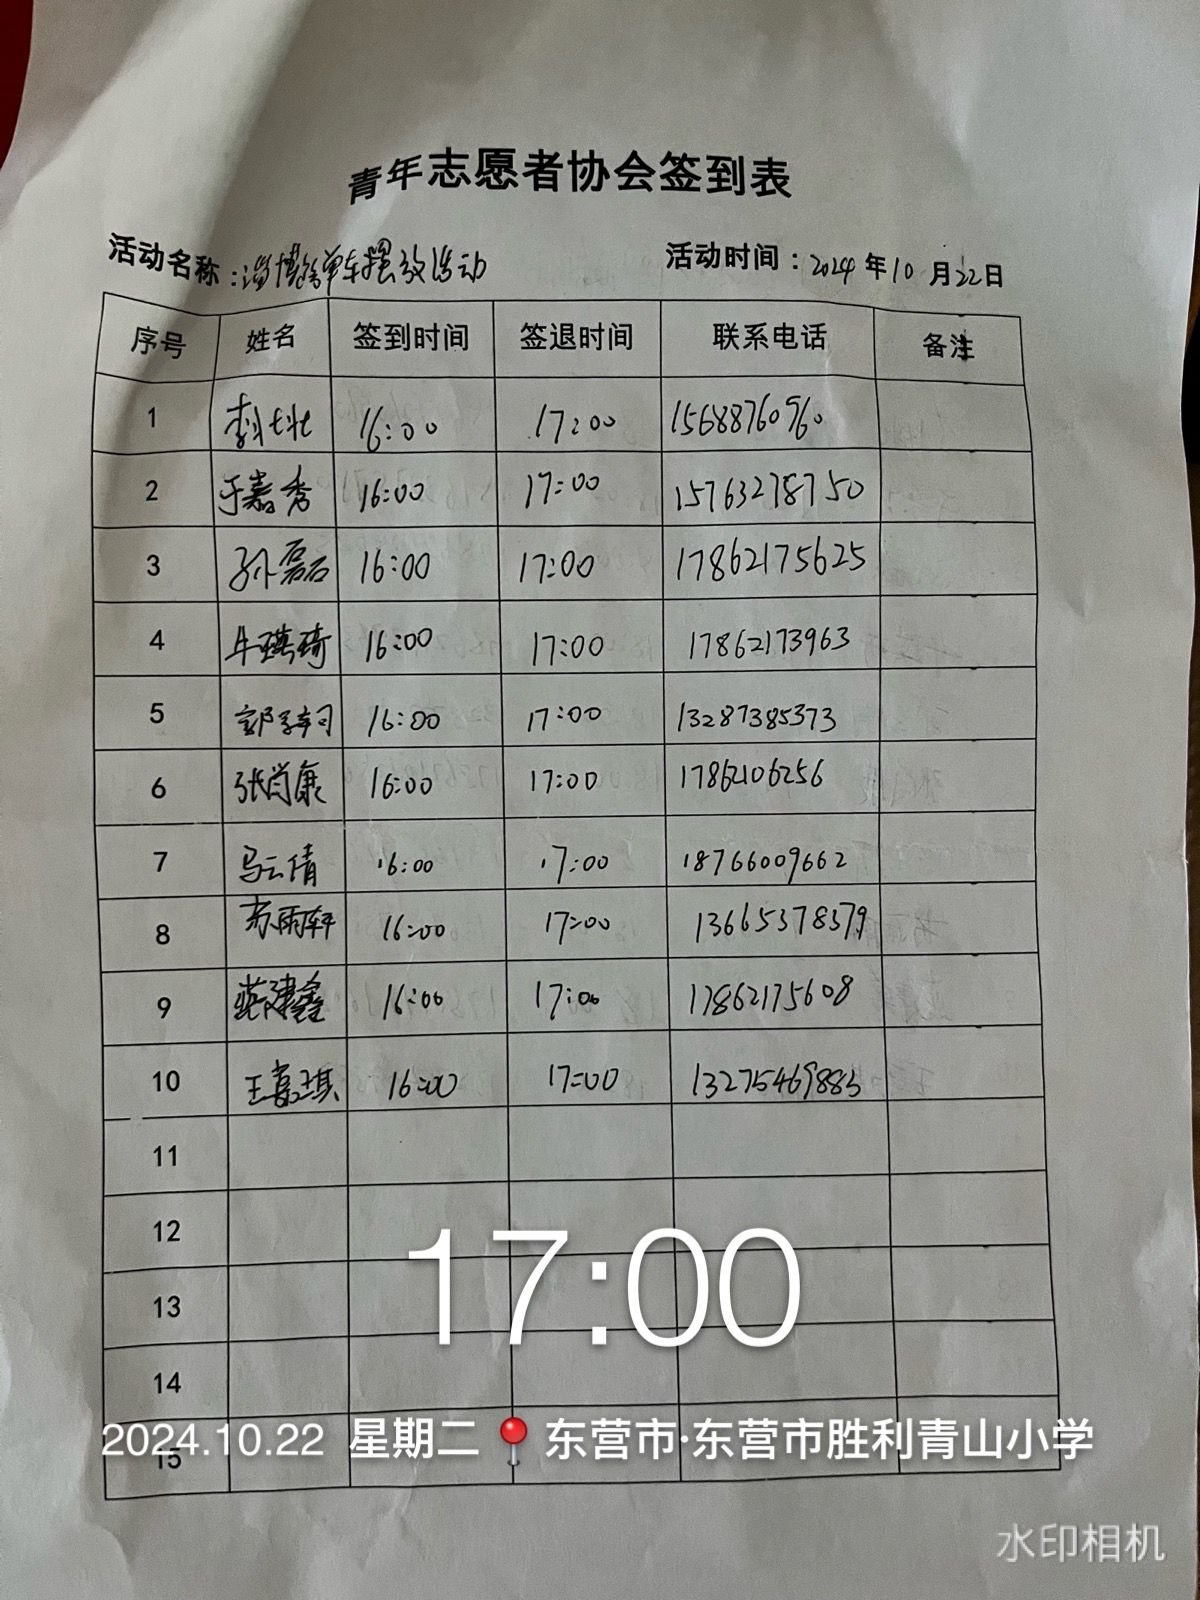 青年志愿者协会签到表
活动名称：淄博路单车摆放活动 活动时间：2024年10月22日
序号 姓名 签到时间 签退时间 联系电话 备注
1 16:00 17:00 15688760960
2 于嘉秀 16:00 17:00 15763278750
3 孙磊 16:00 17:00 17862175625
4 牛琪琦 16:00 17:00 17862173963
5 郭 16:00 17:00 13287385373
6 张尚康 16:00 17:00 17862106256
7 马云倩 16:00 17:00 18766009662
8 苏雨轩 16:00 17:00 13665378379
9 建鑫 16:00 17:00 17862175608
10 王嘉琪 16:00 17:00 13275469885
11
12
13
14
15
17:00
2024.10.22 星期二 东营市·东营市胜利青山小学
水印相机